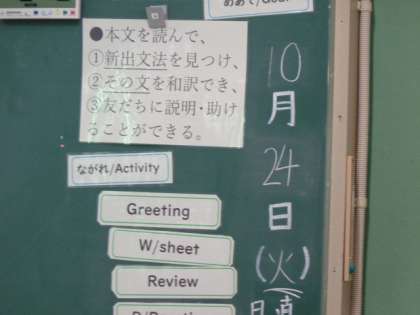 めあて/Goal
●本文を読んで、
①新出文法を見つけ、
②その文を和訳でき、
③友だちに説明・助け
ることができる。
ながれ/Activity
Greeting
W/sheet
Review
10
月
24
日
(火)
日直